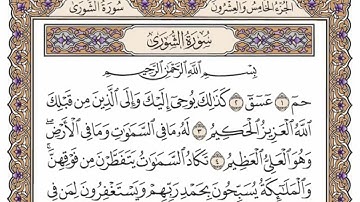 الجزء الخامس والعشرون
سورة الشورى
سُورَةُ الشُّورَىٰ
بِسْمِ اللَّهِ الرَّحْمَٰنِ الرَّحِيمِ
حمٓ ١ عٓسٓقٓ ٢ كَذَٰلِكَ يُوحِىٓ إِلَيْكَ وَإِلَى الَّذِينَ مِن قَبْلِكَ
اللَّهُ الْعَزِيزُ الْحَكِيمُ ٣ لَهُۥ مَا فِى السَّمَٰوَٰتِ وَمَا فِى الْأَرْضِ ۖ
وَهُوَ الْعَلِىُّ الْعَظِيمُ ٤ تَكَادُ السَّمَٰوَٰتُ يَتَفَطَّرْنَ مِن فَوْقِهِنَّ ۚ
وَالْمَلَٰٓئِكَةُ يُسَبِّحُونَ بِحَمْدِ رَبِّهِمْ وَيَسْتَغْفِرُونَ لِمَن فِى